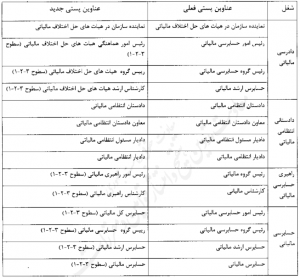 شغل عناوین پستی فعلی عناوین پستی جدید
دادرسی مالیاتی
نماینده سازمان در هیات های حل اختلاف مالیاتی نماینده سازمان در هیات های حل اختلاف مالیاتی
رئیس امور حسابرسی مالیاتی رئیس امور هماهنگی هیات های حل اختلاف مالیاتی (سطوح ۳-۲-۱)
رئیس گروه حسابرسی مالیاتی رییس گروه هیات های حل اختلاف مالیاتی (سطوح ۳-۲-۱)
حسابرس ارشد مالیاتی کارشناس ارشد هیات های حل اختلاف مالیاتی (سطوح ۳-۲-۱)
دادستانی انتظامی مالیاتی
دادستان انتظامی مالیاتی دادستان انتظامی مالیاتی
معاون دادستان انتظامی مالیاتی معاون دادستان انتظامی مالیاتی
دادیار مسئول انتظامی مالیاتی دادیار مسئول انتظامی مالیاتی
دادیار انتظامی مالیاتی دادیار انتظامی مالیاتی
راهبری حسابرسی مالیاتی
رئیس گروه مالیاتی رئیس امور راهبری مالیاتی (سطوح ۳-۲-۱)
کارشناس مالیاتی کارشناس راهبری مالیاتی (سطوح ۳-۲-۱)
حسابرسی مالیاتی
رئیس امور حسابرسی مالیاتی حسابرس کل مالیاتی (سطوح ۳-۲-۱)
رئیس گروه حسابرسی مالیاتی رییس گروه حسابرسی مالیاتی (سطوح ۳-۲-۱)
حسابرس ارشد مالیاتی حسابرس ارشد مالیاتی (سطوح ۳-۲-۱)
حسابرس مالیاتی حسابرس مالیاتی (سطوح ۳-۲-۱)